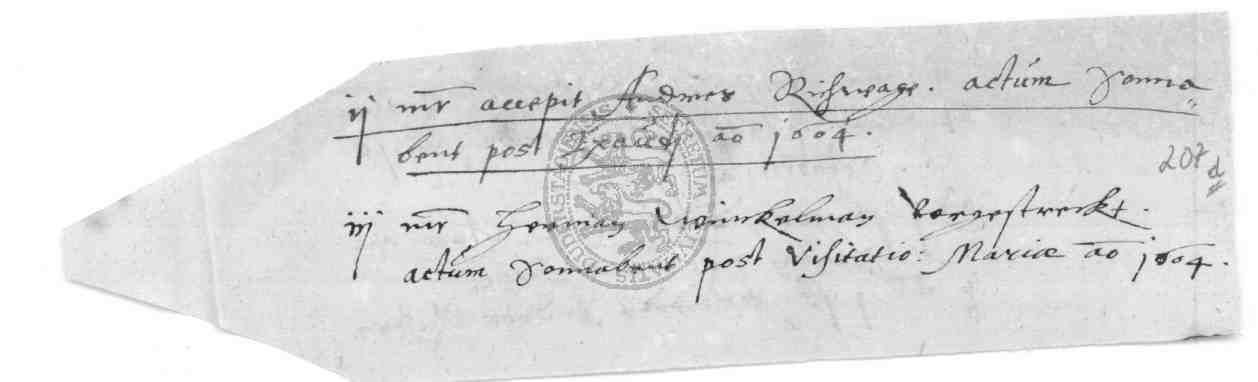 ij mr accepit Andres Richwage. actum Sonna
bent post Exaudj ao 1604.
207
iij mr Herman Winckelman vorgestreckt.
actum Sonnabent post Visitatio: Mariæ ao 1604.